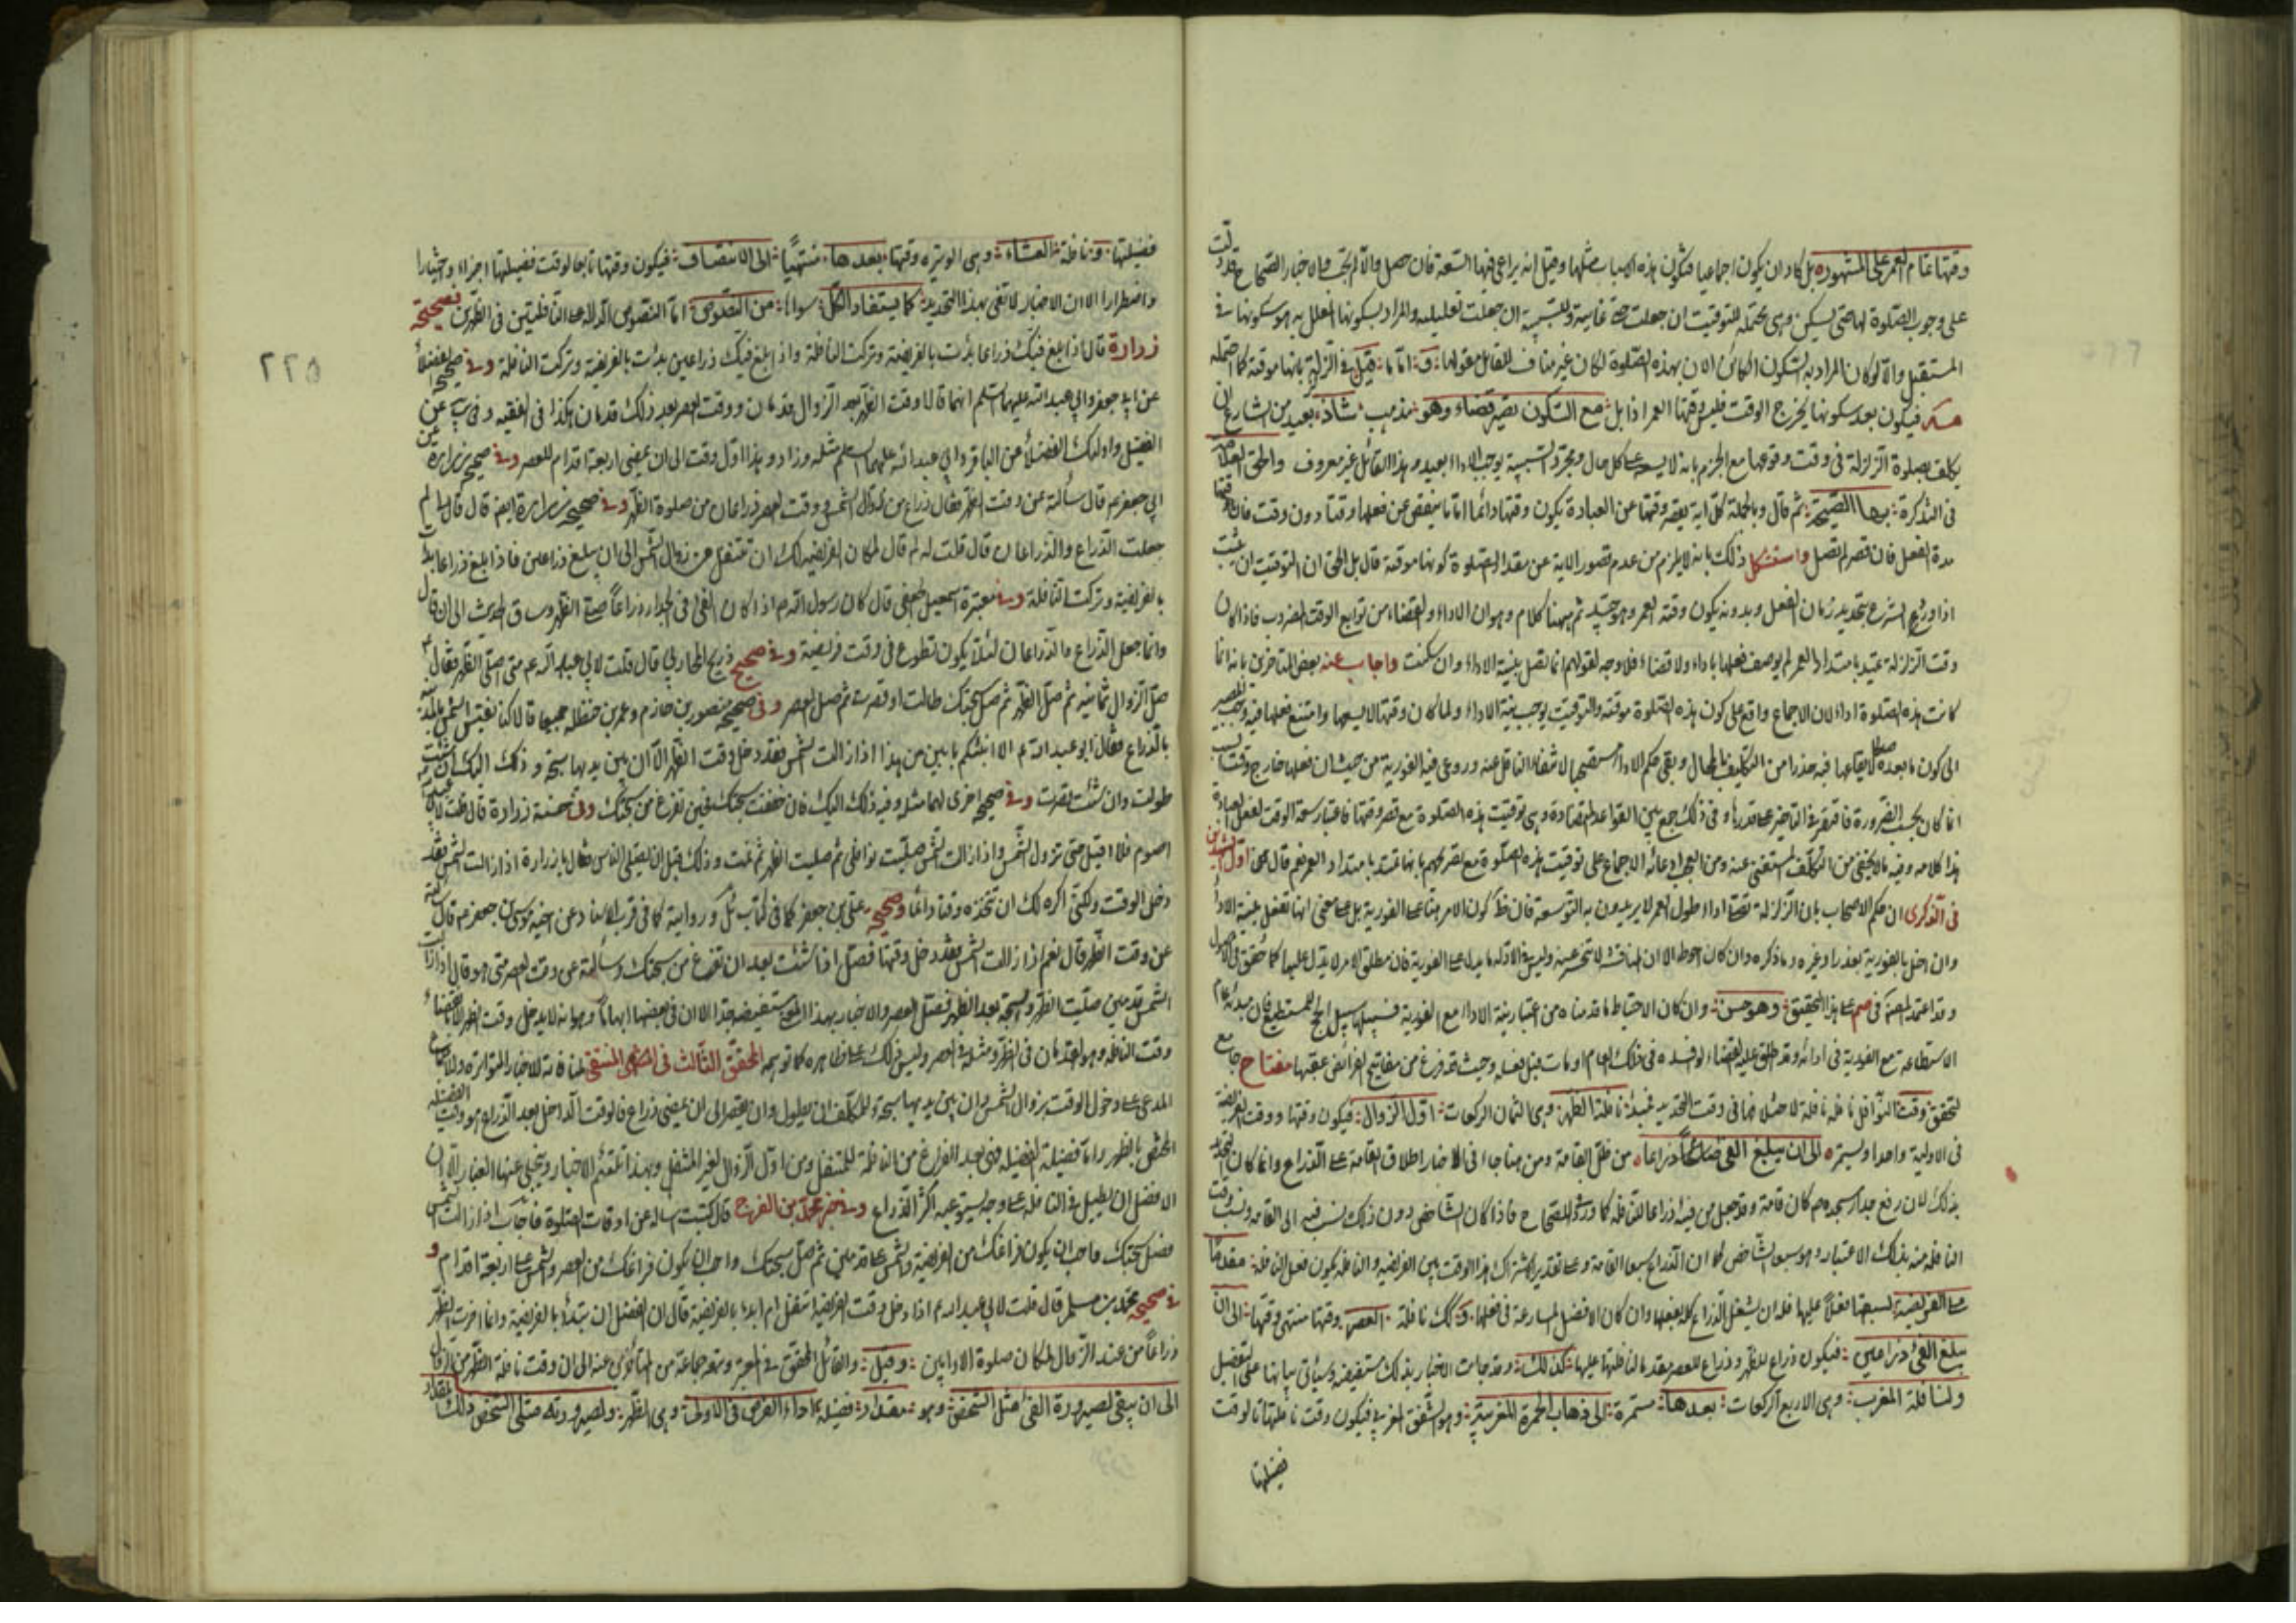 وقتها تمام العمر على المشهور بل كاد ان يكون اجماعيا فتكون هذه اسبابا مثلها وقيل انه يراعى فيها السعة فان حصل والا لم تجب والاخبار الصحاح قد دلت
على وجوب الصلوة لها حتى يسكن وهى محتملة للتوقيت ان جعلت حتى غائية وللسببية ان جعلت تعليلية والمراد بسكونها المعلل به هو سكونها فى
المستقبل والا لو كان المراد به السكون الكائن الان بهذه الصلوة لكان غير مناف للقائل بقولها وقيل فى الزلزلة بانها موقتة كما احتمله
فيكون بعد سكونها يخرج الوقت فليس وقتها العمر اذا بل مع السكون تصير قضاء وهو مذهب شاذ بعيد من الشارع ان
يكلف بصلوة الزلزلة فى وقت وقوعها مع الجزم بانه لا يسعها على كل حال ومجرد السببية يوجب الاداء بعيد وهذا القائل غير معروف
فى التذكرة بها الصيحة ثم قال وبالجملة كل اية يقصر وقتها عن العبادة يكون وقتها دائما اما ما ينقص عن فعلها وقتا دون وقت فان وقتها
مدة الفعل فان قصر لم تصل واستشكل ذلك بانه لا يلزم من عدم قصور الاية عن مقدار الصلوة كونها موقتة قال بل الحق ان التوقيت ان يثبت
اذا ورد الشرع بتحديد زمان الفعل وبدونه يكون وقته العمر وهو جيد ثم ههنا كلام وهو ان الاداء والقضاء من توابع الوقت المضروب فاذا كان
وقت الزلزلة عتيد بامتداد العمر لم يوصف فعلها باداء ولا قضاء فلا وجه لقولهم انها تصلى بنية الاداء وان سكنت واجاب عنه بعض المتاخرين بانه انما
كانت هذه الصلوة اداء لان الاجماع واقع على كون هذه الصلوة موقتة والتوقيت يوجب نية الاداء ولما كان وقتها لا يسعها وامتنع فعلها فيه وجب المصير
الى كون ما بعده صالحا لايقاعها فيه حذرا من التكليف بالمحال وبقى حكم الاداء مستصحبا لانتفاء الناقل عنه وروعى فيه الفورية من حيث ان فعلها خارج وقت السبب
انما كان بحسب الضرورة فاقتصر فى التاخير على قدرها وفى ذلك جمع بين القواعد المتضادة وهى توقيت هذه الصلوة مع قصر وقتها فاعتبار سعة الوقت لفعل العبادة
هذا كلامه وفيه ما لا يخفى من التكلف المستغنى عنه ومن العجب ادعائه الاجماع على توقيت هذه الصلوة مع تصريحهم بانها تمتد بامتداد العمر نعم قال
فى الذكرى ان حكم الاصحاب بان الزلزلة تصلى اداء طول العمر لا يريدون به التوسعة فان ظاهر كون الامر هنا على الفورية بل على معنى انها تفعل بنية الاداء
وان اخل بالفورية لعذر او غيره وما ذكره وان كان احوط الا ان المناقشة لا تنحسر عنه وليس فى الادلة ما يدل على الفورية فان مطلق الامر لا يدل عليها كما حقق فى الاصول
وقد اعتمد المصنف فى هذا التحقيق وهو حسن وان كان الاحتياط ما قدمناه من اعتبار نية الاداء مع الفورية فسبيلها سبيل الحج للمستطيع فان مبدئه عام
الاستطاعة مع الفورية فى ادائه وقد يطلق عليه القضاء لو افسده فى ذلك العام او مات قبل فعله وحيث قد فرغ من مفاتيح الفرائض عقبها مفتاح جامع
لتحقق وقت النوافل نافلة نافلة لاختلافها فى وقت التحديد فبدء نافلة الظهر وهى الثمان الركعات اول الزوال فيكون وقتها ووقت الفريضة
فى الاولية واحدا ويستمر الى ان يبلغ الفئ ذراعا من ظل القامة ومن هنا جاء فى الاخبار اطلاق القامة على الذراع وانما كان التحديد
بذلك لان رفع جدار مسجده ص كان قامة وقد جعل من فيئه ذراعا للنافلة كما ورد فى الصحاح فاذا كان الشاخص دون ذلك نسب فيه الى القامة ونسب وقت
النافلة منه بذلك الاعتبار وهو سبعا الشاخص كما ان الذراع سبعا القامة وعلى تقدير اشتراك هذا الوقت بين الفريضة والنافلة يكون فعل النافلة مقدما
على الفريضة لسبقها فعلا عليها فله ان يشغل الذراع كله بفعلها وان كان الافضل المسارعة فى فعلها وكك نافلة العصر وقتها منتهى وقتها الى ان
يبلغ الفئ ذراعين فيكون ذراع للظهر وذراع للعصر بتقديم النافلة عليها كذلك وقد جاءت الاخبار بذلك مستفيضة وسيأتى بيانها على التفصيل
ولنافلة المغرب وهى الاربع الركعات بعدها مستمرة الى ذهاب الحمرة المغربية وهو الشفق المغربى فيكون وقت نافلتها تابعا لوقت
فضيلتها
٢٢٥
فضيلتها ونافلة العشاء وهى الوتيرة وقتها بعدها منتهيا الى الانتصاف فيكون وقتها تابعا لوقت فضيلتها اجزاء واختيارا
واضطرارا الا ان الاخبار لا تفى بهذا التحديد كما يستفاد الكل سواها من النصوص اما النصوص الدالة على النافلتين فى الظهرين فصحيحة
زرارة قال اذا بلغ فيئك ذراعا بدئت بالفريضة وتركت النافلة واذا بلغ فيئك ذراعين بدئت بالفريضة وتركت النافلة وفى صحيح الفضلاء
عن ابى جعفر وابى عبد الله عليهما السلم انهما قالا وقت الظهر بعد الزوال قدمان ووقت العصر بعد ذلك قدمان هكذا فى الفقيه وفى يب عن
الفضيل واولئك الفضلاء عن الباقر وابى عبد الله عليهما السلم مثله وزاد وهذا اول وقت الى ان يمضى اربعة اقدام للعصر وفى صحيح زرارة عن
ابى جعفر ع قال سألته عن وقت الظهر فقال ذراع من زوال الشمس ووقت العصر ذراعان من صلوة الظهر وفى صحيح زرارة ايضا قال قال لم
جعلت الذراع والذراعان قال قلت له لم قال لمكان الفريضة لك ان تتنفل من زوال الشمس الى ان يبلغ ذراعين فاذا بلغ ذراعا بدئت
بالفريضة وتركت النافلة وفى معتبرة اسمعيل الجعفى قال كان رسول الله ص اذا كان الفئ فى الجدار ذراعا صلى الظهر وساق الحديث الى ان قال
وانما جعل الذراع والذراعان لئلا يكون تطوع فى وقت فريضة وفى صحيح ذريح المحاربى قال قلت لابى عبد الله ع متى اصلى الظهر فقال
صل الزوال ثمانية ثم صل الظهر ثم صل سبحتك طالت او قصرت ثم صل العصر وفى صحيح منصور بن حازم وعمر بن حنظلة جميعا قالا كنا نقيس الشمس بالمدينة
بالذراع فقال ابو عبد الله ع الا انبئكم بابين من هذا اذا زالت الشمس فقد دخل وقت الظهر الا ان بين يديها سبحة وذلك اليك ان شئت
طولت وان شئت قصرت وفى صحيح اخرى لهما مثله وفيه ذلك اليك فان خففت سبحتك فحين تفرغ من سبحتك وفى حسنة زرارة قال قلت لابى عبد الله
اصوم فلا اقيل حتى تزول الشمس واذا زالت الشمس صليت نوافلى ثم صليت الظهر ثم نمت وذلك قبل ان يصلى الناس فقال يا زرارة اذا زالت الشمس فقد
دخل الوقت ولكنى اكره لك ان تتخذه وقتا دائما وصحيح على بن جعفر كما فى كتاب ئل ورواية كما فى قرب الاسناد عن اخيه موسى بن جعفر ع قال سألته
عن وقت الظهر قال نعم اذا زالت الشمس فقد دخل وقتها فصل اذا شئت بعد ان تفرغ من سبحتك وسألته عن وقت العصر متى هو قال اذا زالت
الشمس قدمين صليت الظهر والسبحة بعد الظهر فصل العصر والاخبار بهذا المعنى مستفيضة جدا الا ان فى بعضها ابهاما وهو انه لا يدخل وقت الظهر الا بمضى
وقت النافلة وهو القدمان فى الظهر ومثله فى العصر وليس ذلك على ظاهره كما توهمه المحقق الثالث فى المنتقى لمنافاته للاخبار المتواترة وللاجماع
المدعى على دخول الوقت بزوال الشمس وان بين يديها سبحة للمكلف ان يطول وان يقصر الى ان يمضى ذراع فالوقت الداخل بعد الذراع هو وقت الفضيلة
المختص بالظهر واما فضيلة الفضيلة فهى بعد الفراغ من النافلة للمتنفل ومن اول الزوال لغير المتنفل وبهذا تلتئم الاخبار وينجلى عنها الغبار الا ان
الافضل ان يطيل فى النافلة على وجه يستوعب اكثر الذراع وفى خبر محمد بن الفرج قال كتبت اساله عن اوقات الصلوة فاجاب اذا زالت الشمس
فصل سبحتك واحب ان يكون فراغك من الفريضة والشمس على قدمين ثم صل سبحتك واحب ان يكون فراغك من العصر والشمس على اربعة اقدام و
فى صحيح محمد بن مسلم قال قلت لابى عبد الله ع اذا دخل وقت الفريضة اتنفل ام ابدء بالفريضة قال ان الفضل ان تبدء بالفريضة وانما اخرت الظهر
ذراعا من عند الزوال لمكان صلوة الاوابين وقيل والقائل المحقق فى المعتبر وتبعه جماعة من المتأخرين عنه الى ان وقت نافلة الظهر من الزوال
الى ان يبقى لصيرورة الفئ مثل الشخص وهو مقدار فضيلة اداء الفرض فى الاولى وهى الظهر ولصيرورته مثلى الشخص ذلك المقدار